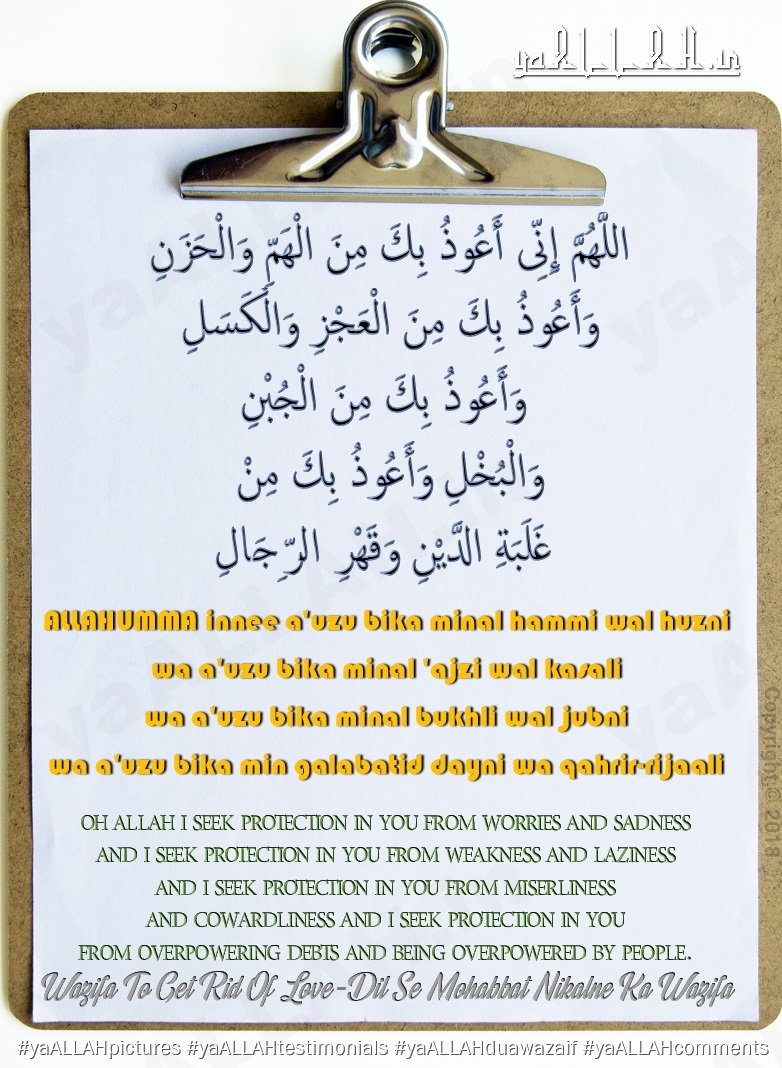 yaALLAH.in
اللَّهُمَّ إِنِّى أَعُوذُ بِكَ مِنَ الْهَمِّ وَالْحَزَنِ
وَأَعُوذُ بِكَ مِنَ الْعَجْزِ وَالْكَسَلِ
وَأَعُوذُ بِكَ مِنَ الْجُبْنِ
وَالْبُخْلِ وَأَعُوذُ بِكَ مِنْ
غَلَبَةِ الدَّيْنِ وَقَهْرِ الرِّجَالِ
ALLAHUMMA innee a'uzu bika minal hammi wal huzni
wa a'uzu bika minal 'ajzi wal kasali
wa a'uzu bika minal bukhli wal jubni
wa a'uzu bika min galabatid dayni wa qahrir-rijaali
OH ALLAH I SEEK PROTECTION IN YOU FROM WORRIES AND SADNESS
AND I SEEK PROTECTION IN YOU FROM WEAKNESS AND LAZINESS
AND I SEEK PROTECTION IN YOU FROM MISERLINESS
AND COWARDLINESS AND I SEEK PROTECTION IN YOU
FROM OVERPOWERING DEBTS AND BEING OVERPOWERED BY PEOPLE.
Wazifa To Get Rid Of Love-Dil Se Mohabbat Nikalne Ka Wazifa
#yaALLAHpictures #yaALLAHtestimonials #yaALLAHduawazaif #yaALLAHcomments
Copyright© 2018